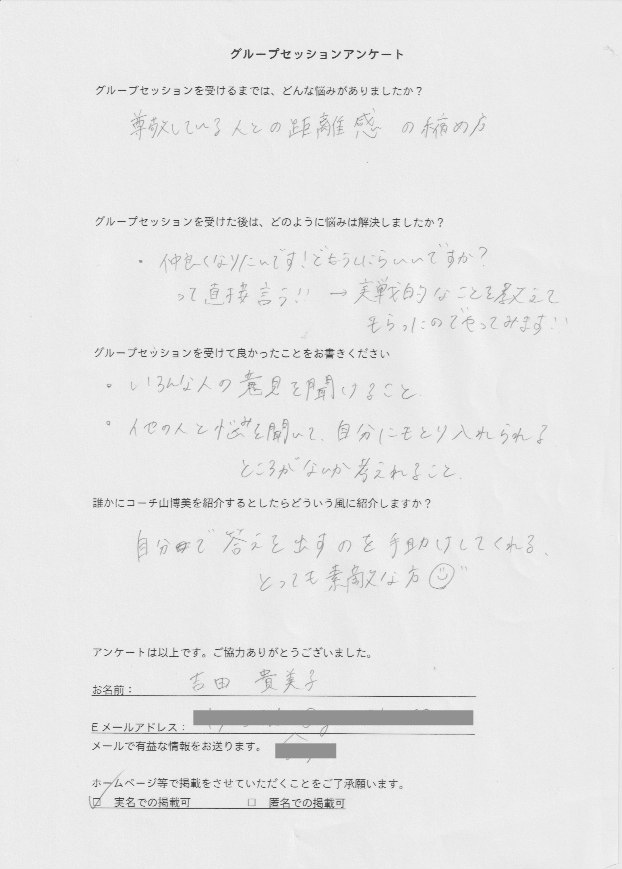 グループセッションアンケート
グループセッションを受けるまでは、どんな悩みがありましたか？
尊敬している人との距離感の縮め方
グループセッションを受けた後は、どのように悩みは解決しましたか？
・仲良くなりたいです！どうしたらいいですか？
って直接言う!! → 実戦的なことを教えて
もらったのでやってみます!!
グループセッションを受けて良かったことをお書きください
・いろんな人の意見を聞けること。
・他の人と悩みを聞いて、自分にもとり入れられる
ところがないか考えれること。
誰かにコーチ山博美を紹介するとしたらどういう風に紹介しますか？
自分で答えを出すのを手助けしてくれる、
とっても素敵な方
アンケートは以上です。ご協力ありがとうございました。
お名前： 吉田 貴美子
Ｅメールアドレス：
メールで有益な情報をお送ります。
ホームページ等で掲載をさせていただくことをご了承願います。
☑ 実名での掲載可 □ 匿名での掲載可